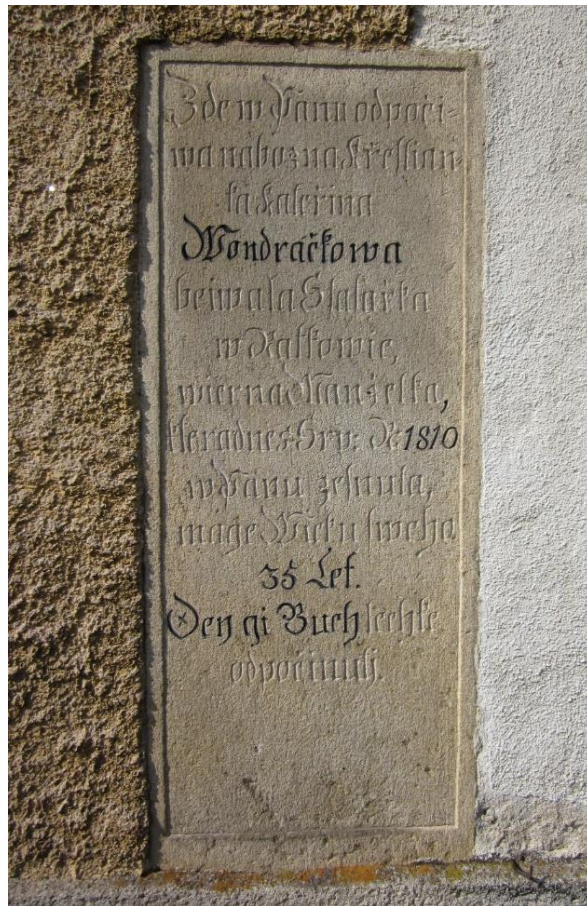 Zde w Pánu odpoči=
wa nábozna Křestian=
ka Kateřina
Wondráčkowa
beiwala Statařka
w
wierna Manželka,
Srp: R: 1810
w Pánu zesnula,
mage Wieku sweho
35 Let.
Dey gi Buch lechke
odpočinuti.